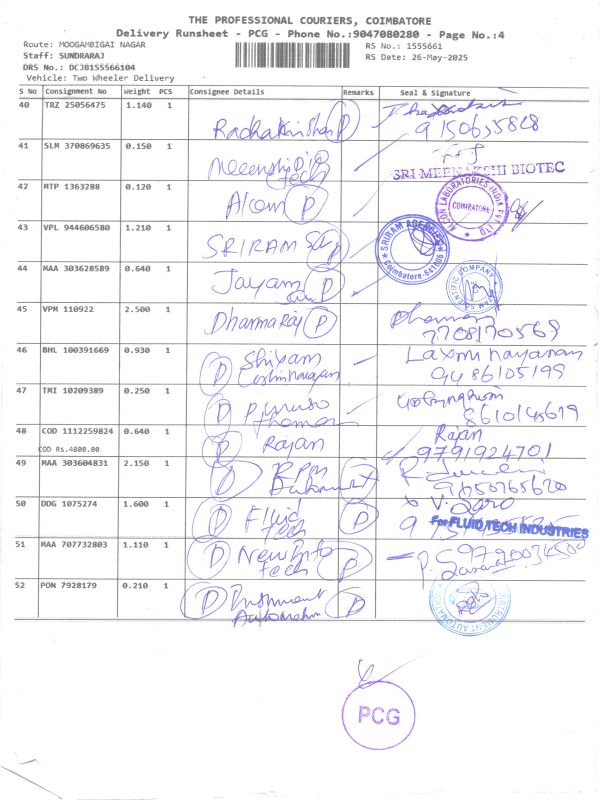 THE PROFESSIONAL COURIERS, COIMBATORE
Delivery Runsheet - PCG - Phone No.:9047080280 - Page No.:4
Route: MOOGAMBIGAI NAGAR
RS No.: 1555661
Staff: SUNDRARAJ
RS Date: 26-May-2025
DRS No.: DCJ8155566104
Vehicle: Two Wheeler Delivery
S No Consignment No Weight PCS Consignee Details Remarks Seal & Signature
40 TRZ 25056475 1.140 1 P
41 SLM 370869635 0.150 1 tech
SRI MEENAKSHI BIOTEC
42 MTP 1363288 0.120 1 P
ALCON LABORATORIES INDIA PVT LTD COIMBATORE
43 VPL 944606580 1.210 1 SRIRAM P
SRIRAM AGENCIES Coimbatore-641006
44 MAA 303628589 0.640 1 Jayam P
SCIENTIFIC COMPANY
45 VPM 110922 2.500 1 Dharmaraj P
7708170569
46 BHL 100391669 0.930 1 D Shiyam Laxmi narayanan
9486105199
47 TMI 10209389 0.250 1 D
8610145619
48 COD 1112259824 0.640 1 D Rajan Rajan
COD Rs.4800.00 9791924701
49 MAA 303604831 2.150 1 D RPM
50 DDG 1075274 1.600 1 D Fluid tech P
For FLUID TECH INDUSTRIES
51 MAA 707732803 1.110 1 D New Info tech P
52 PON 7928179 0.210 1 D P
INSTRUMENT AUTOMATION
PCG